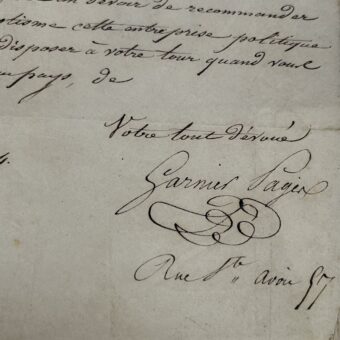 devoir de recommander
cette entreprise politique
disposer à votre tour quand vous
pays, de
Votre tout dévoué
Garnier Pagès
Rue Ste avoie 57